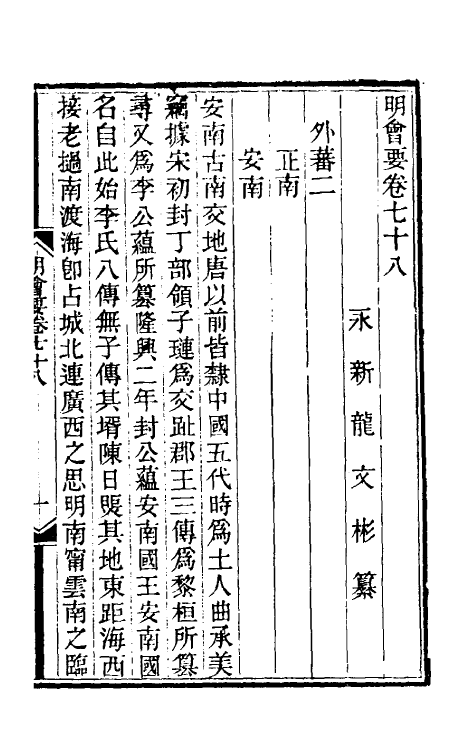 明會要卷七十八
永新龍文彬纂
外蕃二
正南
安南
安南古南交地唐以前皆隸中國五代時爲土人曲承美
竊據宋初封丁部領子璉爲交趾郡王三傳爲黎桓所篡
尋又爲李公蘊所篡隆興二年封公蘊安南國王安南國
名自此始李氏八傳無子傳其壻陳日煚其地東距海西
接老撾南渡海卽占城北連廣西之思明南甯雲南之臨
明會要卷七十八
一